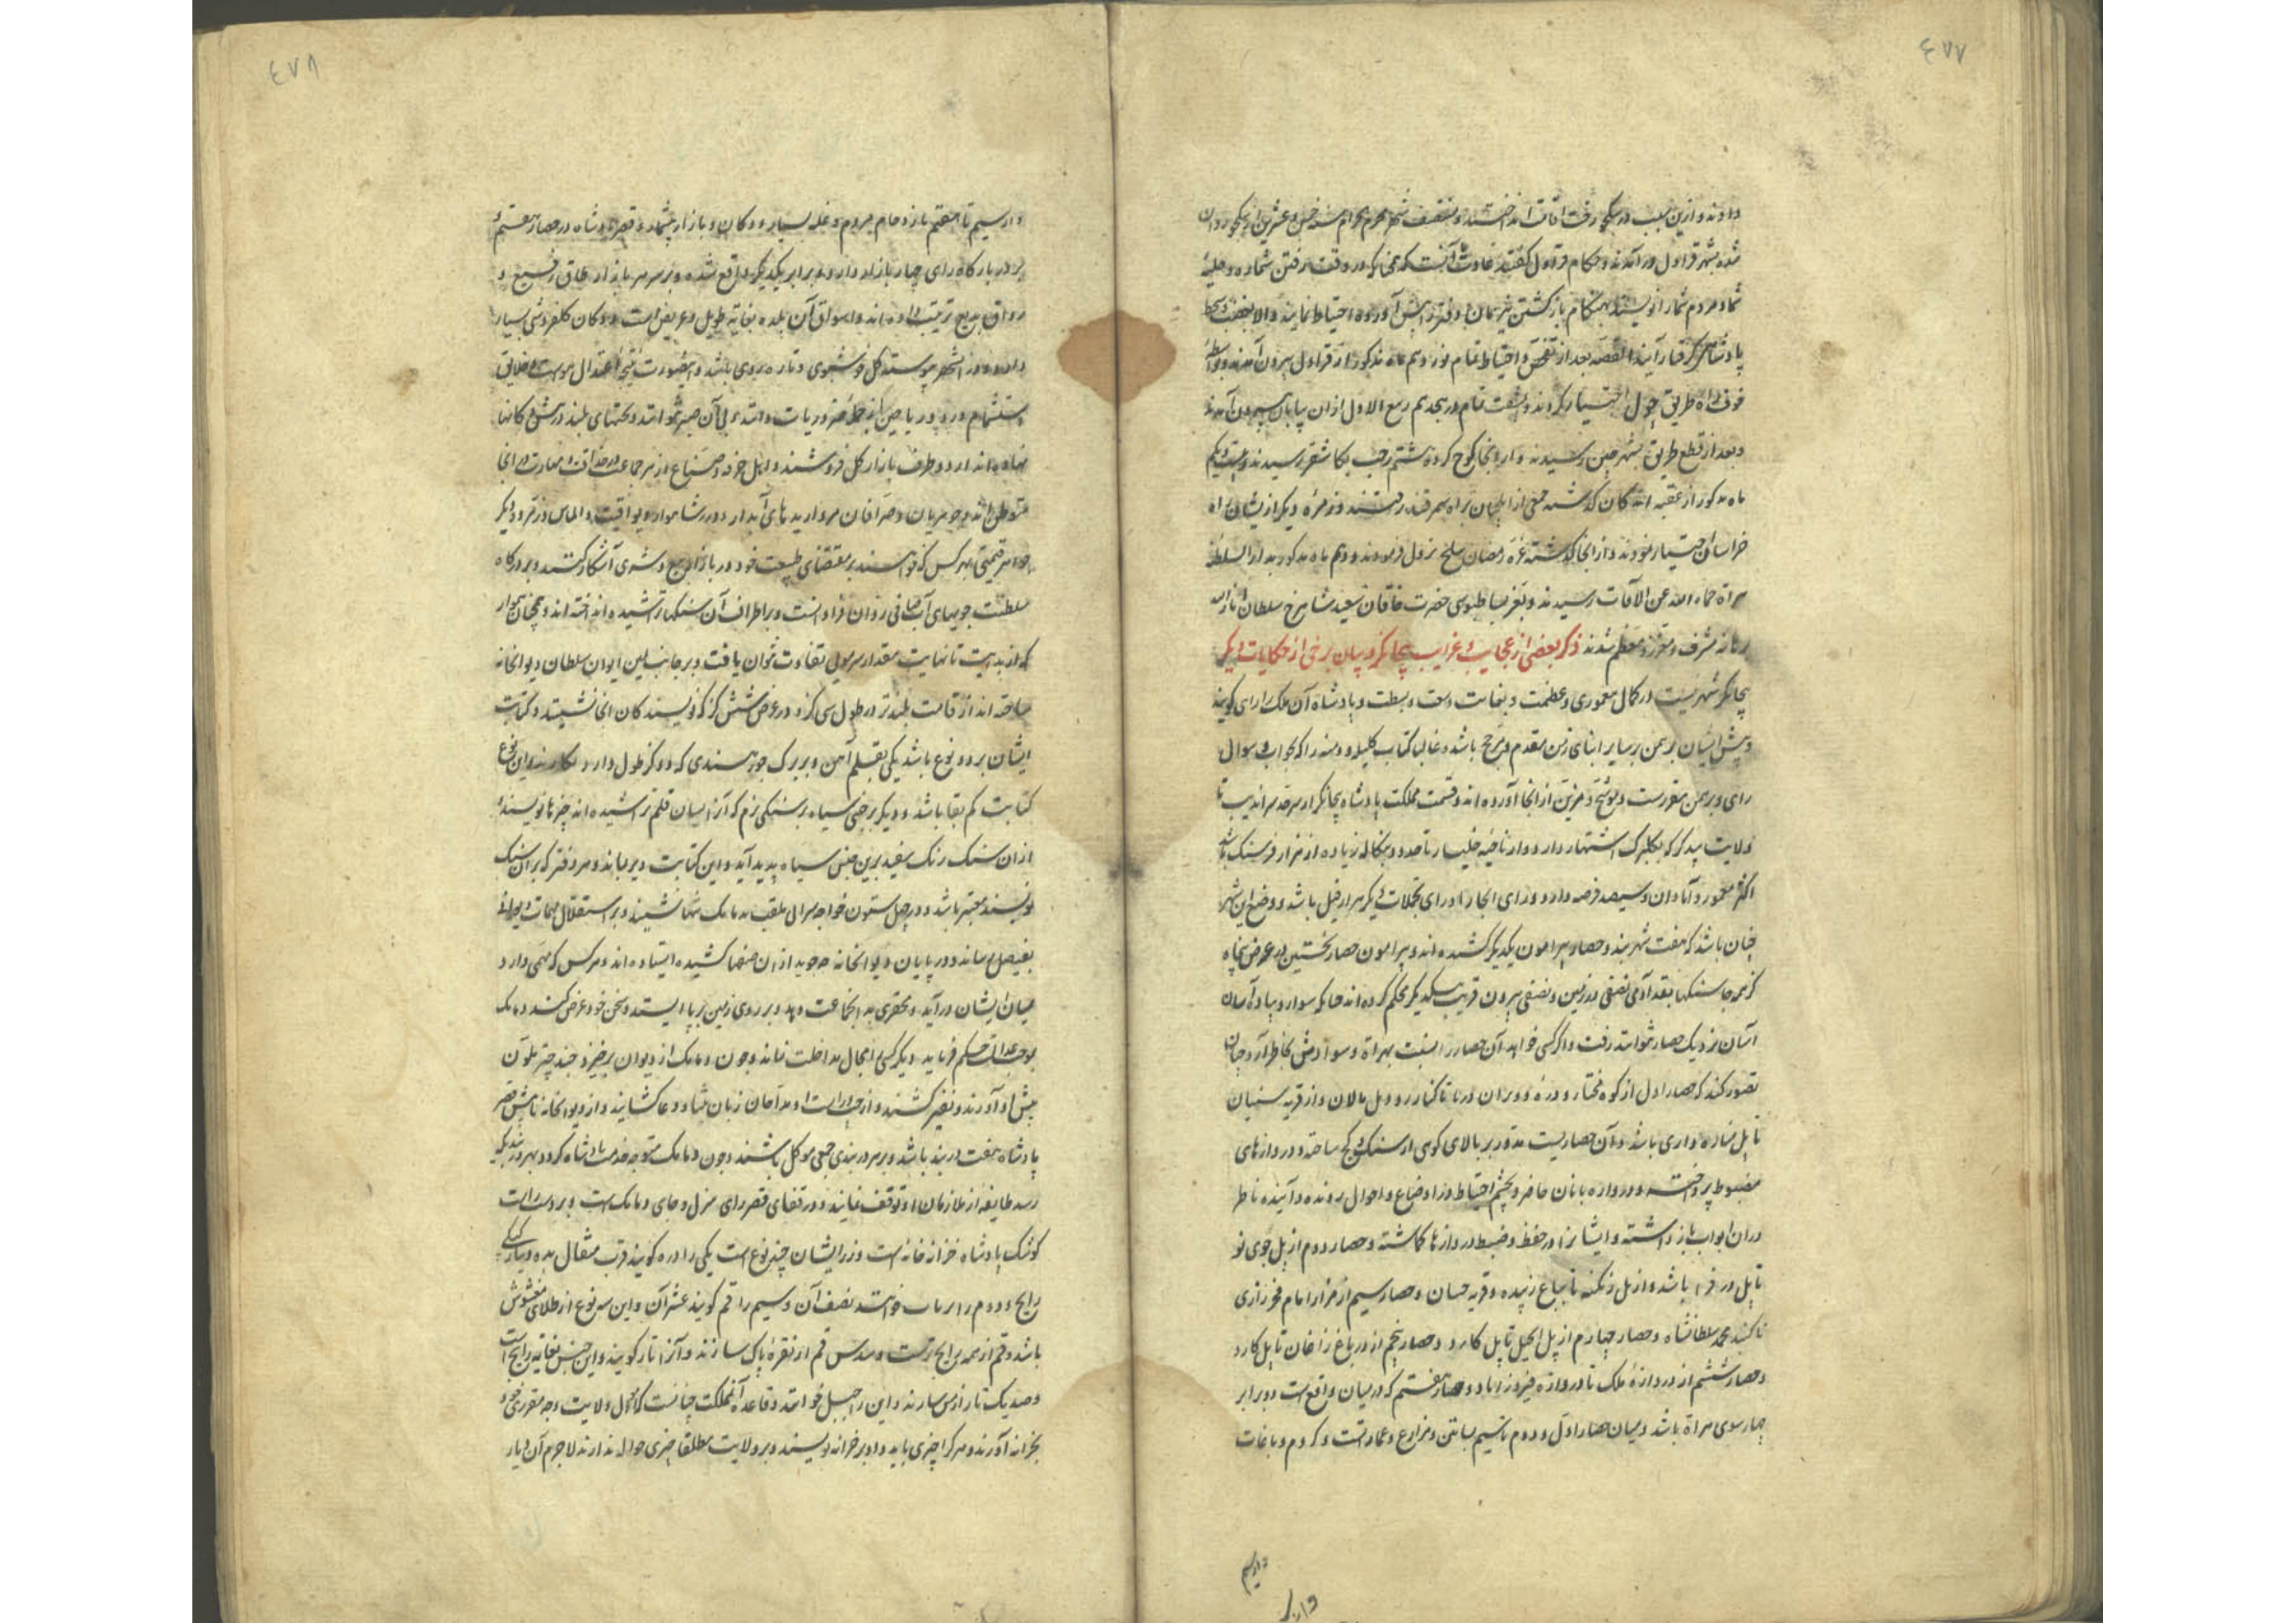 ٤٧٧
دادند و ازین سبب در سکجو رفت اقامت انداختند و منتصف شهر محرم الحرام سنه خمس و عشرین از سکجو روان
شده بشهر قراول درآمدند و حکام قراول گفتند عادت آنست که همچنانکه در وقت رفتن شماره و حلیهٔ
شما و مردم شما را نویسند بهنگام بازگشتن نیز همان دفتر پیش آورده احتیاط نمایند و الا بغضب و سخط
پادشاهی گرفتار آیند القصه بعد از تفحص و احتیاط تمام نوزدهم ماه مذکور از قراول بیرون آمدند و بواسطهٔ
خوف راه طریق چول اختیار کردند و بمشقت تمام در هجدهم ربیع الاول ازان بیابان بیرون آمدند
و بعد از قطع طریق بشهر ختن رسیدند و از انجا کوچ کرده ششم رجب بکاشغر رسیدند و بیست و یکم
ماه مذکور از عقبه اندکان گذشته بعضی از ایلچیان براه سمرقند رفتند و زمرهٔ دیگر از یشان راه
خراسان اختیار نمودند و از انجا گذشته غره رمضان ببلخ نزول فرمودند و دهم ماه مذکور بدار السلطنه
هراة حماه الله عن الافات رسیدند و بعز بساطبوسی حضرت خاقان سعید شاهرخ سلطان انار الله
برهانه مشرف و معزز و معظم شدند ذکر بعضی از عجایب و غرایب بیجانگر و بیان برخی از حکایات دیگر
بیجانگر شهریست در کمال معموری و عظمت و بغایت وسعت و بسطت و پادشاه آن ملک را رای گویند
و پیش ایشان برهمن بر سایر ابنای زمن مقدم و مرجح باشد و غالبا کتاب کلیله و دمنه را که بجواب و سوال
رای و برهمن مقررست و موشح و مزین از انجا آورده‌اند و قسمت مملکت پادشاه بیجانگر از سرحد سراندیب تا
ولایت بیدکر که بکلبرک اشتهار دارد و از ناحیهٔ ملیبار تا حدود بنگاله زیاده از هزار فرسنگ باشد
اکثر معمور و آبادان و سیصد فرضه دارد و رای انجا را ورای تجملات دیگر هزار فیل باشد و وضع این شهر
چنان باشد که هفت شهربند و حصار پیرامون یکدیگر کشیده‌اند و پیرامون حصار نخستین در عرض پنجاه
گز هر جا سنگها بقد آدمی نصفی در زمین و نصفی بیرون قریب یکدیگر محکم کرده‌اند چنانکه سوار و پیاده آسان
آسان نزدیک حصار نتوانند رفت و اگر کسی خواهد آن حصار را بنسبت بهراة و سوادش بخاطر آرد چنان
تصور کند که حصار اول از کوه مختار و دره دوبران تا کنار رود و پل مالان و از قریه سنیان
تا پل باشد و آن حصاریست مدور بر بالای کوهی از سنگ و گچ ساخته و دروازهای
مضبوط پرداخته و دروازه‌بانان حاضر و بچشم احتیاط در اوضاع و احوال رونده و آینده ناظر
دران ابواب باز داشته و ایشانرا در حفظ و ضبط دروازها گماشته و حصار دوم از پل جوی نو
تا پل درقرا باشد و از پل تا باغ زبیده و قریه جسان و حصار سیم از مزار امام فخر رازی
تا گنبد محمد سلطانشاه و حصار چهارم از پل انجیل تا پل کارد و حصار پنجم از در باغ زاغان تا پل کارد
و حصار ششم از دروازهٔ ملک تا دروازه فیروزآباد و حصار هفتم که درمیان واقع است دو برابر
چهارسوی هراة باشد و میان حصار اول و دوم تا سیم بساتین و مزارع و عمارتست و کروم و باغات
دار سیم
٤٧٨
دار سیم تا هفتم بازدحام مردم و غله بسیار و دکان و بازار بیشمار و قصر پادشاه در حصار هفتم
بر در بارگاه رای چهار بازار دارد در برابر یکدیگر واقع شده و بر سر هر بازار طاق رفیع و
رواق بدیع ترتیب داده‌اند و اسواق آن بلده بغایت طویل و عریض است و دکان گلفروشی بسیار
دارد و در آن شهر پیوسته گل خوشبوی و تازه روی باشد و بنتیجهٔ اعتدال هواست و خلایق
استشمام ورد و ریاحین از جمله ضروریات دانند و بی آن صبر نتوانند و تختهای بلند در پیش دکانها
نهاده‌اند از دو طرف بازار گل فروشند و اهل حرفه و صناع از هر جماعت و بمهارت در انجا
متوطن‌اند و جوهریان و صرافان مرواریدهای آبدار و درر شاهوار و یواقیت و الماس و زمرد و دیگر
جواهر قیمتی بهر کس که خواهند بمقتضای طبیعت خود در بازار بیع و شری آشکار کنند و بر درگاه
سلطنت جویهای آب صافی روان فراوانست و بر اطراف آن سنگها تراشیده انداخته‌اند و همچنان هموار
که از بدایت تا نهایت مقدار سر مویی تفاوت نتوان یافت و بر جانب یمین ایوان سلطان دیوانخانه
ساخته‌اند از قامت بلندتر در طول سی گز و در عرض شش گز که نویسندگان انجا نشینند و کتابت
ایشان بر دو نوع باشد یکی بقلم آهن و بر برگ جوز هندی که دو گز طول دارد نگارند و این نوع
کتابت کم بقا باشد و دیگر بر جنسی سیاه بسنگی نرم که آنرا بسان قلم تراشیده‌اند چیزها نویسند
ازان سنگ رنگ سفید برین جنس سیاه پدید آید و این کتابت دیر بماند و هر دفتر که بران سنگ
نویسند معتبر باشد و در چهل ستون خواجه سرایی ملقب به دانک تنها نشیند و بر استقلال مهمات دیوانی
بفیصل رساند و در پایان دیوانخانه چوبداران صفها کشیده ایستاده‌اند و هر کس که مهمی دارد
میان ایشان درآید و تحفهٔ بدان جماعت دهد و بر روی زمین بر پا ایستد و سخن خود عرض کند و دانک
بموجب عدالت حکم فرماید و دیگر کسی را مجال مداخلت نماند و چون دانک از دیوان برخیزد چند چتر ملون
پیش او آورند و نفیر کشند و از چپ و راست او مداحان زبان بثنا و دعا گشایند و از دیوانخانه تا پیش قصر
پادشاه هفت دربند باشد و بر هر دربندی جمعی موکل باشند و چون دانک متوجه خدمت پادشاه گردد بهر دربند که
رسد طایفهٔ از ملازمان او توقف نمایند و در قفای قصر رای منزل و جای دانک است و بر دست راست
کوشک پادشاه خزانه خانه است و زر ایشان چند نوع است یکی را وره گویند قرب مثقال به ده دینار کپکی
رایج و دوم را پرتاب خوانند نصف آن و سیم را فنم گویند عشر آن و این سه نوع از طلای مغشوش
باشد و فنم از همه رایج‌ترست و سدس فنم از نقره پاک سازند و آنرا تار گویند و این جنس بغایت رایج است
و صد یک تار از مس سازند و این را جیتل خوانند و قاعده آن مملکت چنانست که اموال ولایت وجه مقرری
بخزانه آورند و هر کرا چیزی باید داد بر خزانه نویسند و بر ولایت مطلقا چیزی حواله ندارند لاجرم آن دیار